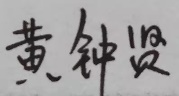 黄钟贤